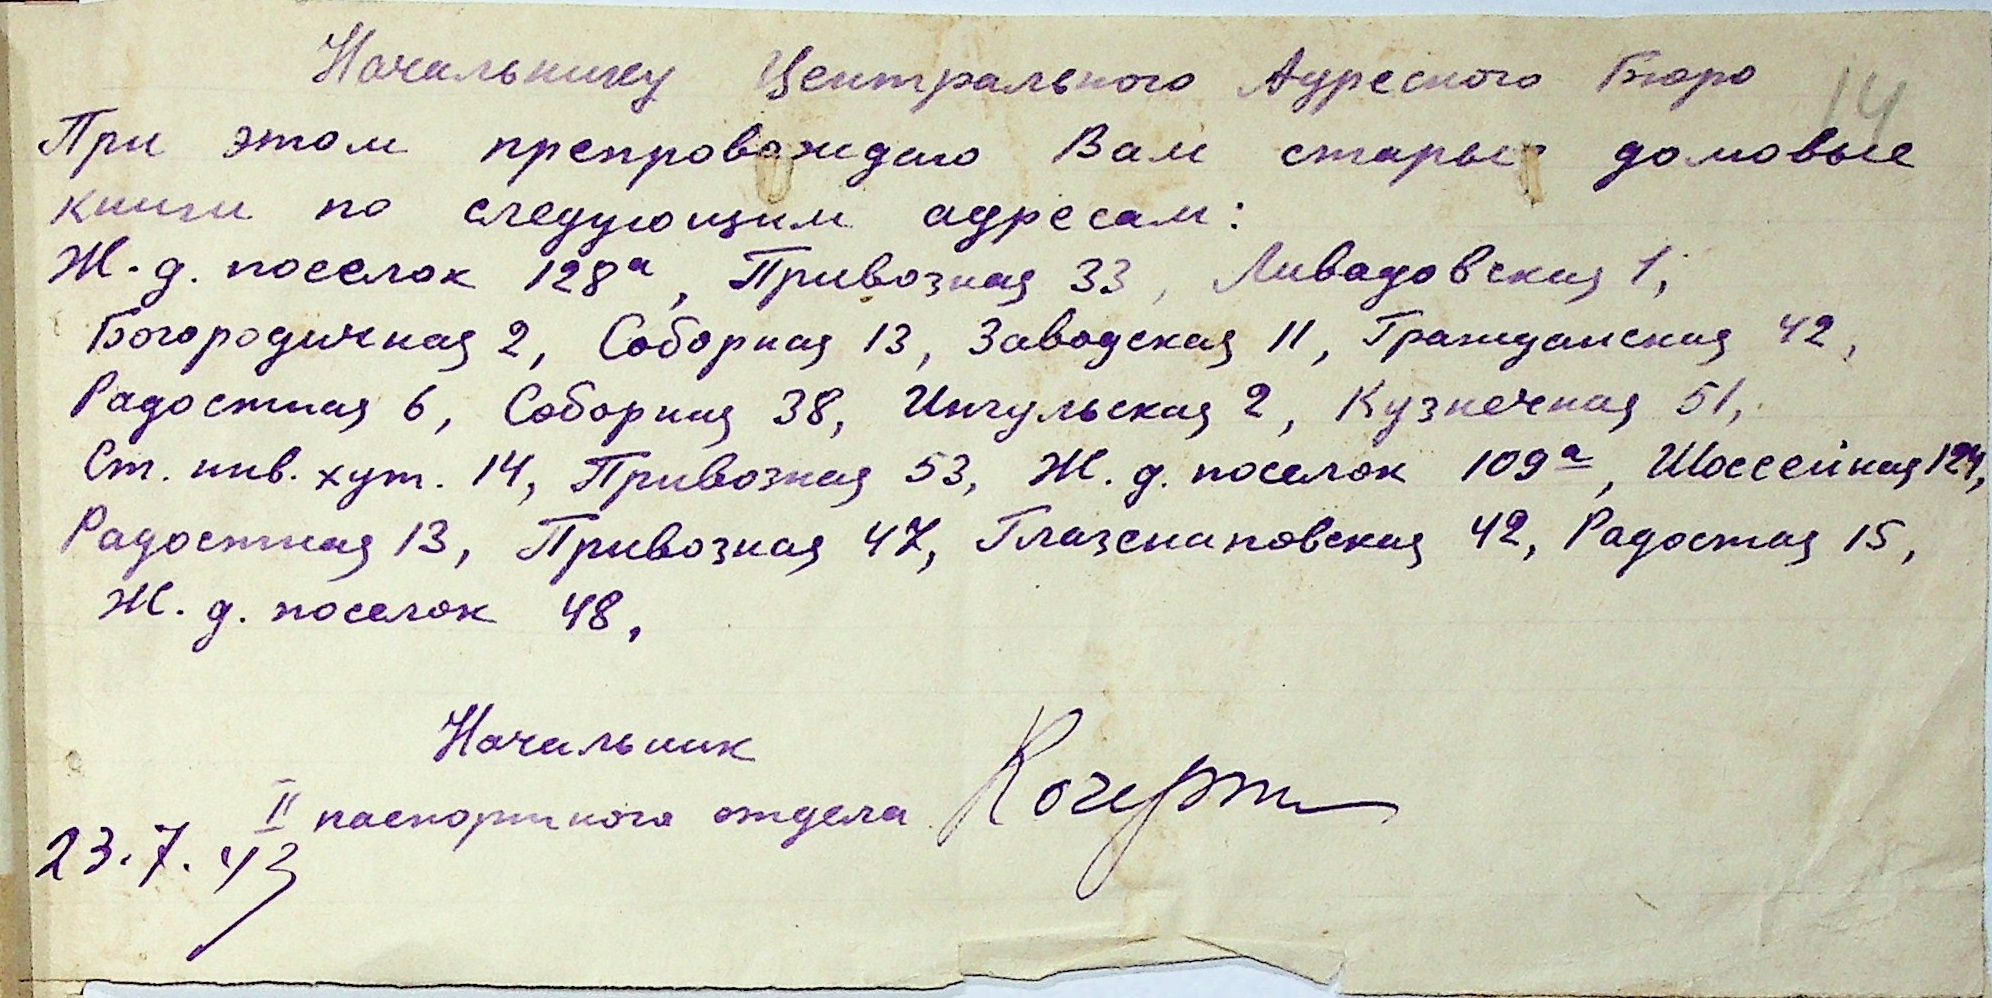 Начальнику Центрального Адресного Бюро
14
При этом препровождаю Вам старые домовые
книги по следующим адресам:
Ж.д. поселок 128а, Привозная 33, Ливадовская 1,
Богородичная 2, Соборная 13, Заводская 11, Гражданская 42,
Радостная 6, Соборная 38, Ингульская 2, Кузнечная 51,
Ст. инв. хут. 14, Привозная 53, Ж.д. поселок 109а, Шоссейная 124,
Радостная 13, Привозная 47, Глазенаповская 42, Радостая 15,
Ж.д. поселок 48,
Начальник
II паспортного отдела
23.7.43